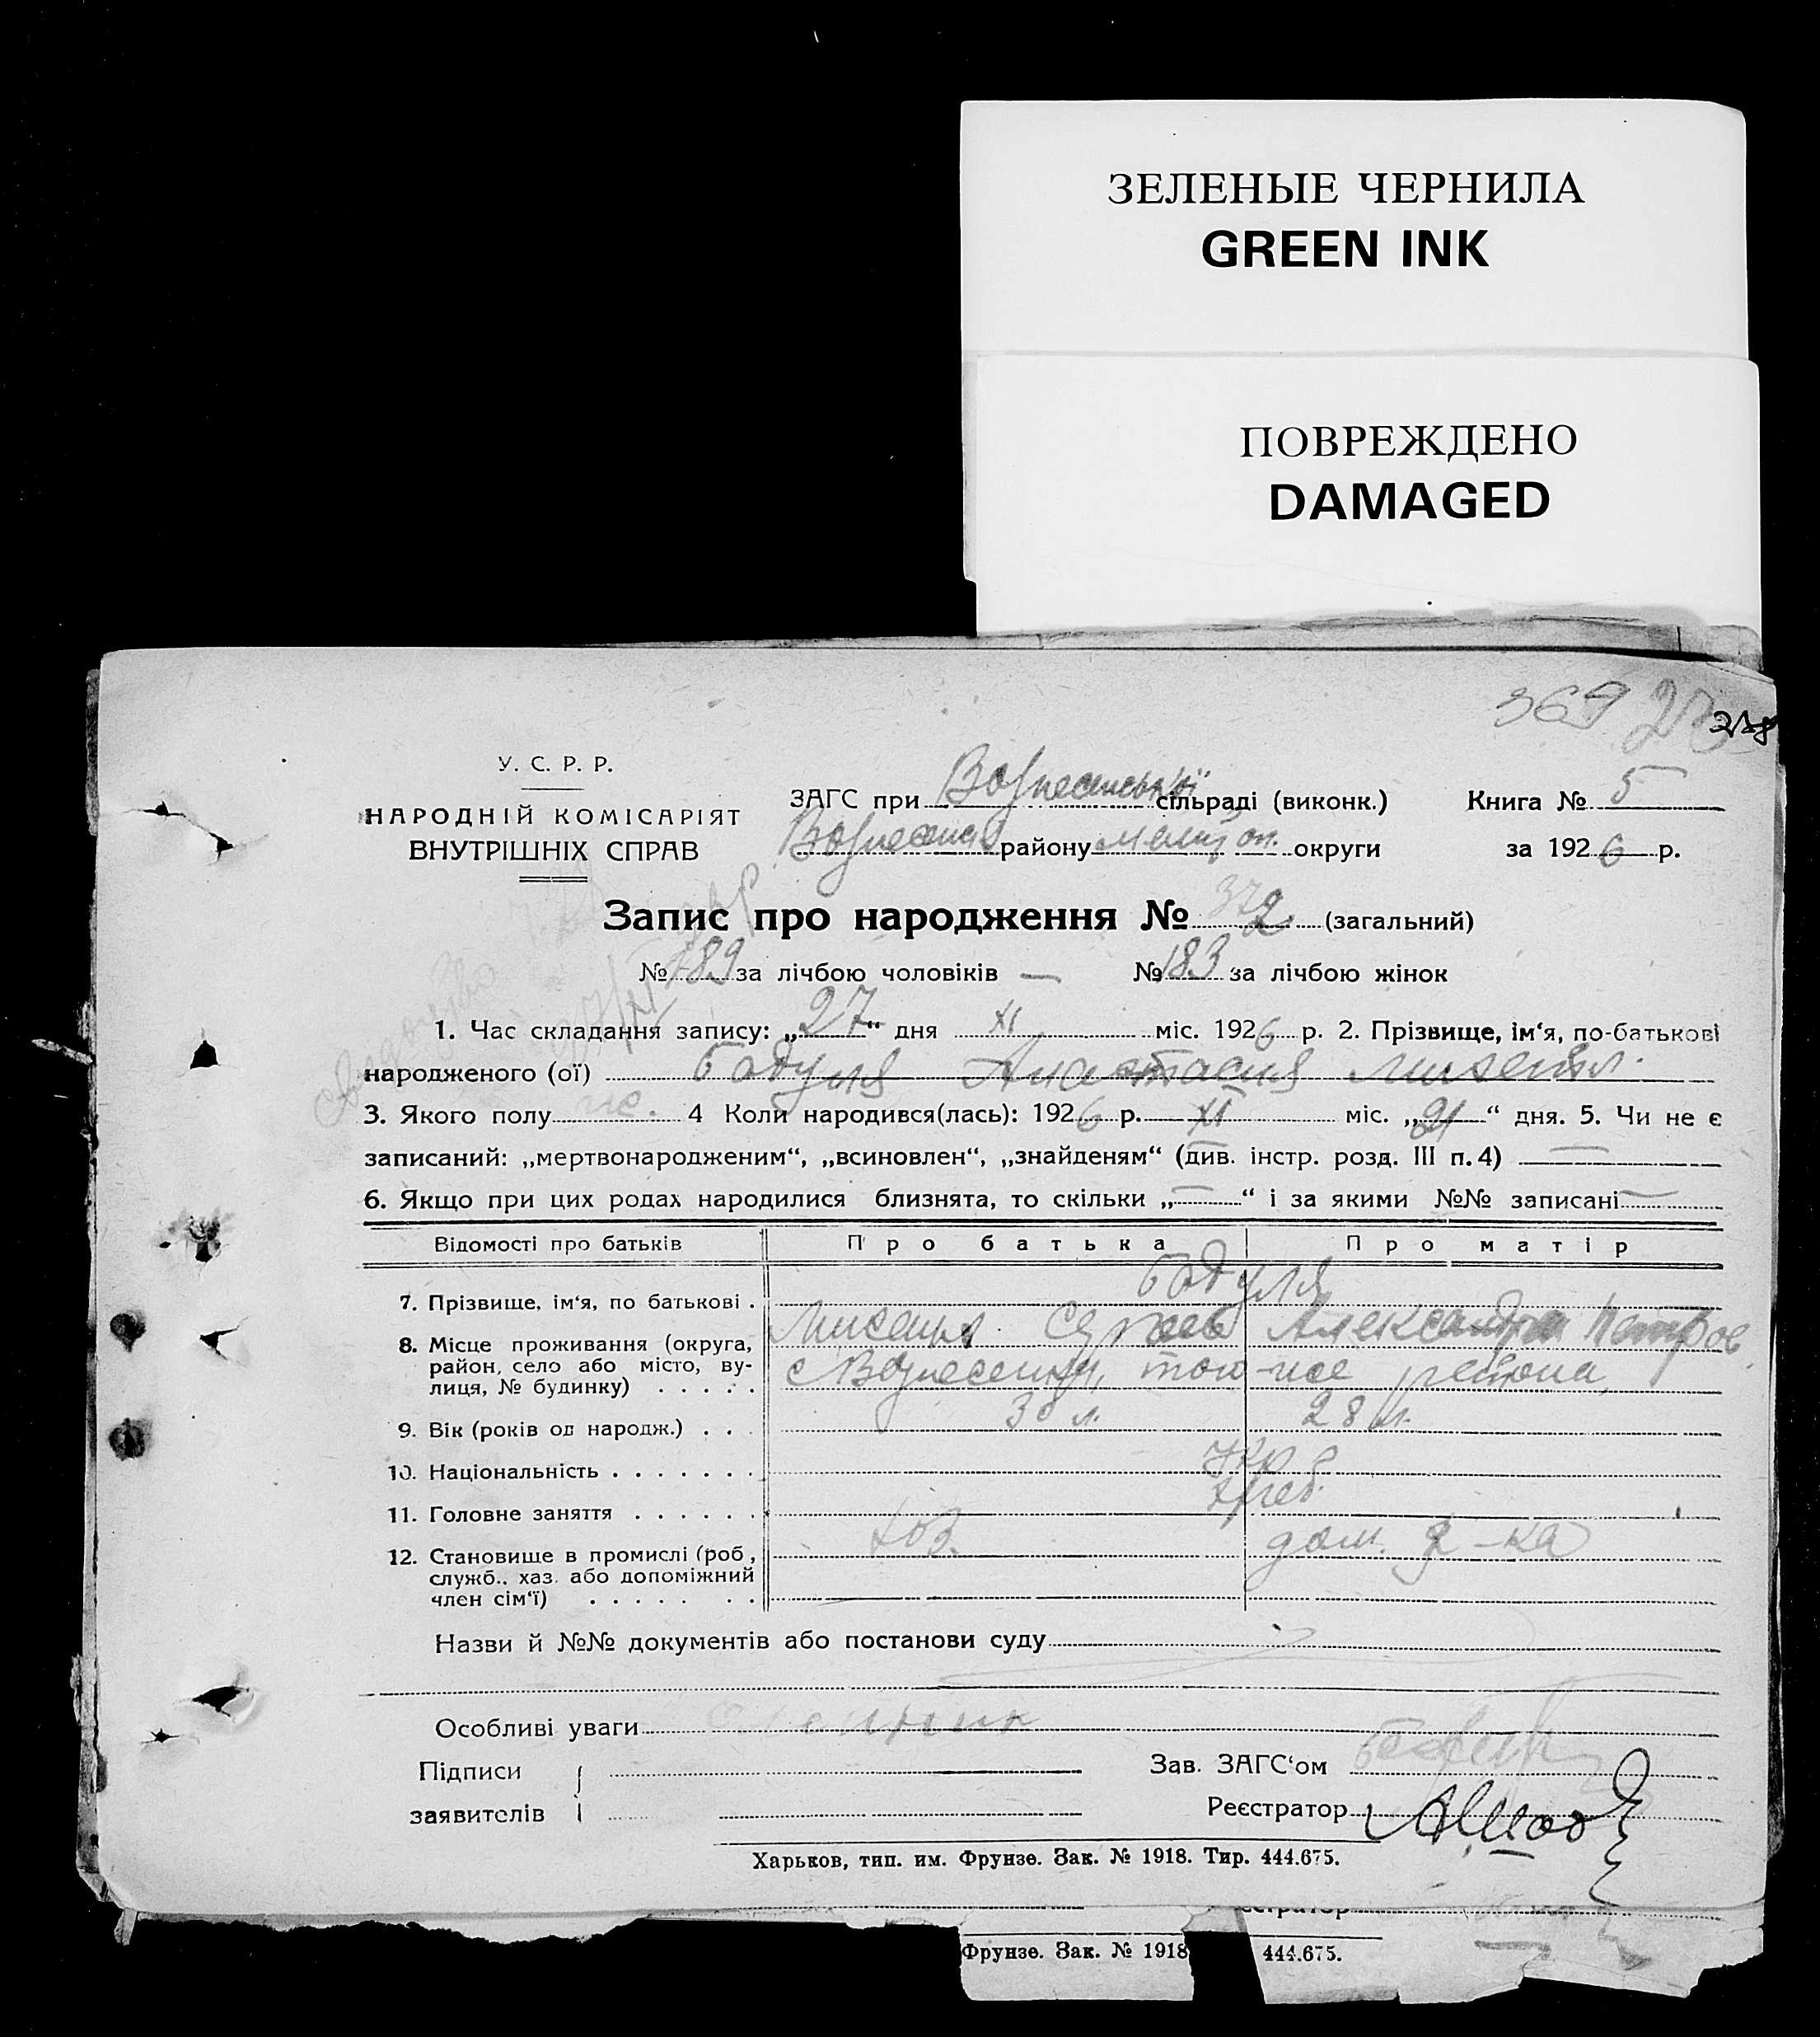 ЗЕЛЕНЫЕ ЧЕРНИЛА
GREEN INK
ПОВРЕЖДЕНО
DAMAGED
369
У. С. Р. Р.
НАРОДНІЙ КОМІСАРІЯТ
ВНУТРІШНІХ СПРАВ
ЗАГС при Вознесенської сільраді (виконк.) Книга № 5
Вознесенс району мелит. оп. округи за 1926 р.
Запис про народження № 372 (загальний)
№ 189 за лічбою чоловіків — № 183 за лічбою жінок
1. Час складання запису: „27“ дня XI міс. 1926 р. 2. Прізвище, ім‘я, по-батькові
народженого (ої) Бадуля Анастасия
3. Якого полу ж. 4 Коли народився(лась): 1926 р. XI міс. „21“ дня. 5. Чи не є
записаний: „мертвонародженим“, „всиновлен“, „знайденям“ (див. інстр. розд. III п. 4) —
6. Якщо при цих родах народилися близнята, то скільки „—“ і за якими №№ записані —
Відомості про батьків Про батька Про матір
7. Прізвище, ім‘я, по батькові . Бадуля
8. Місце проживання (округа, район, село або місто, вулиця, № будинку) . . . . .
Александра Петров
с Вознесенки, того-же района
9. Вік (років од народж.) . . . 30 л. 28 л.
10. Національність . . . . . . . Укр
11. Головне заняття . . . . . . Хлеб.
12. Становище в промислі (роб., служб., хаз. або допоміжний член сім‘ї) . . . . . . .
Хоз. дом. х-ка
Назви й №№ документів або постанови суду
Особливі уваги
Підписи
заявителів
Зав. ЗАГС‘ом
Реєстратор
Харьков, тип. им. Фрунзе. Зак. № 1918. Тир. 444.675.
Фрунзе. Зак. № 1918 444.675.